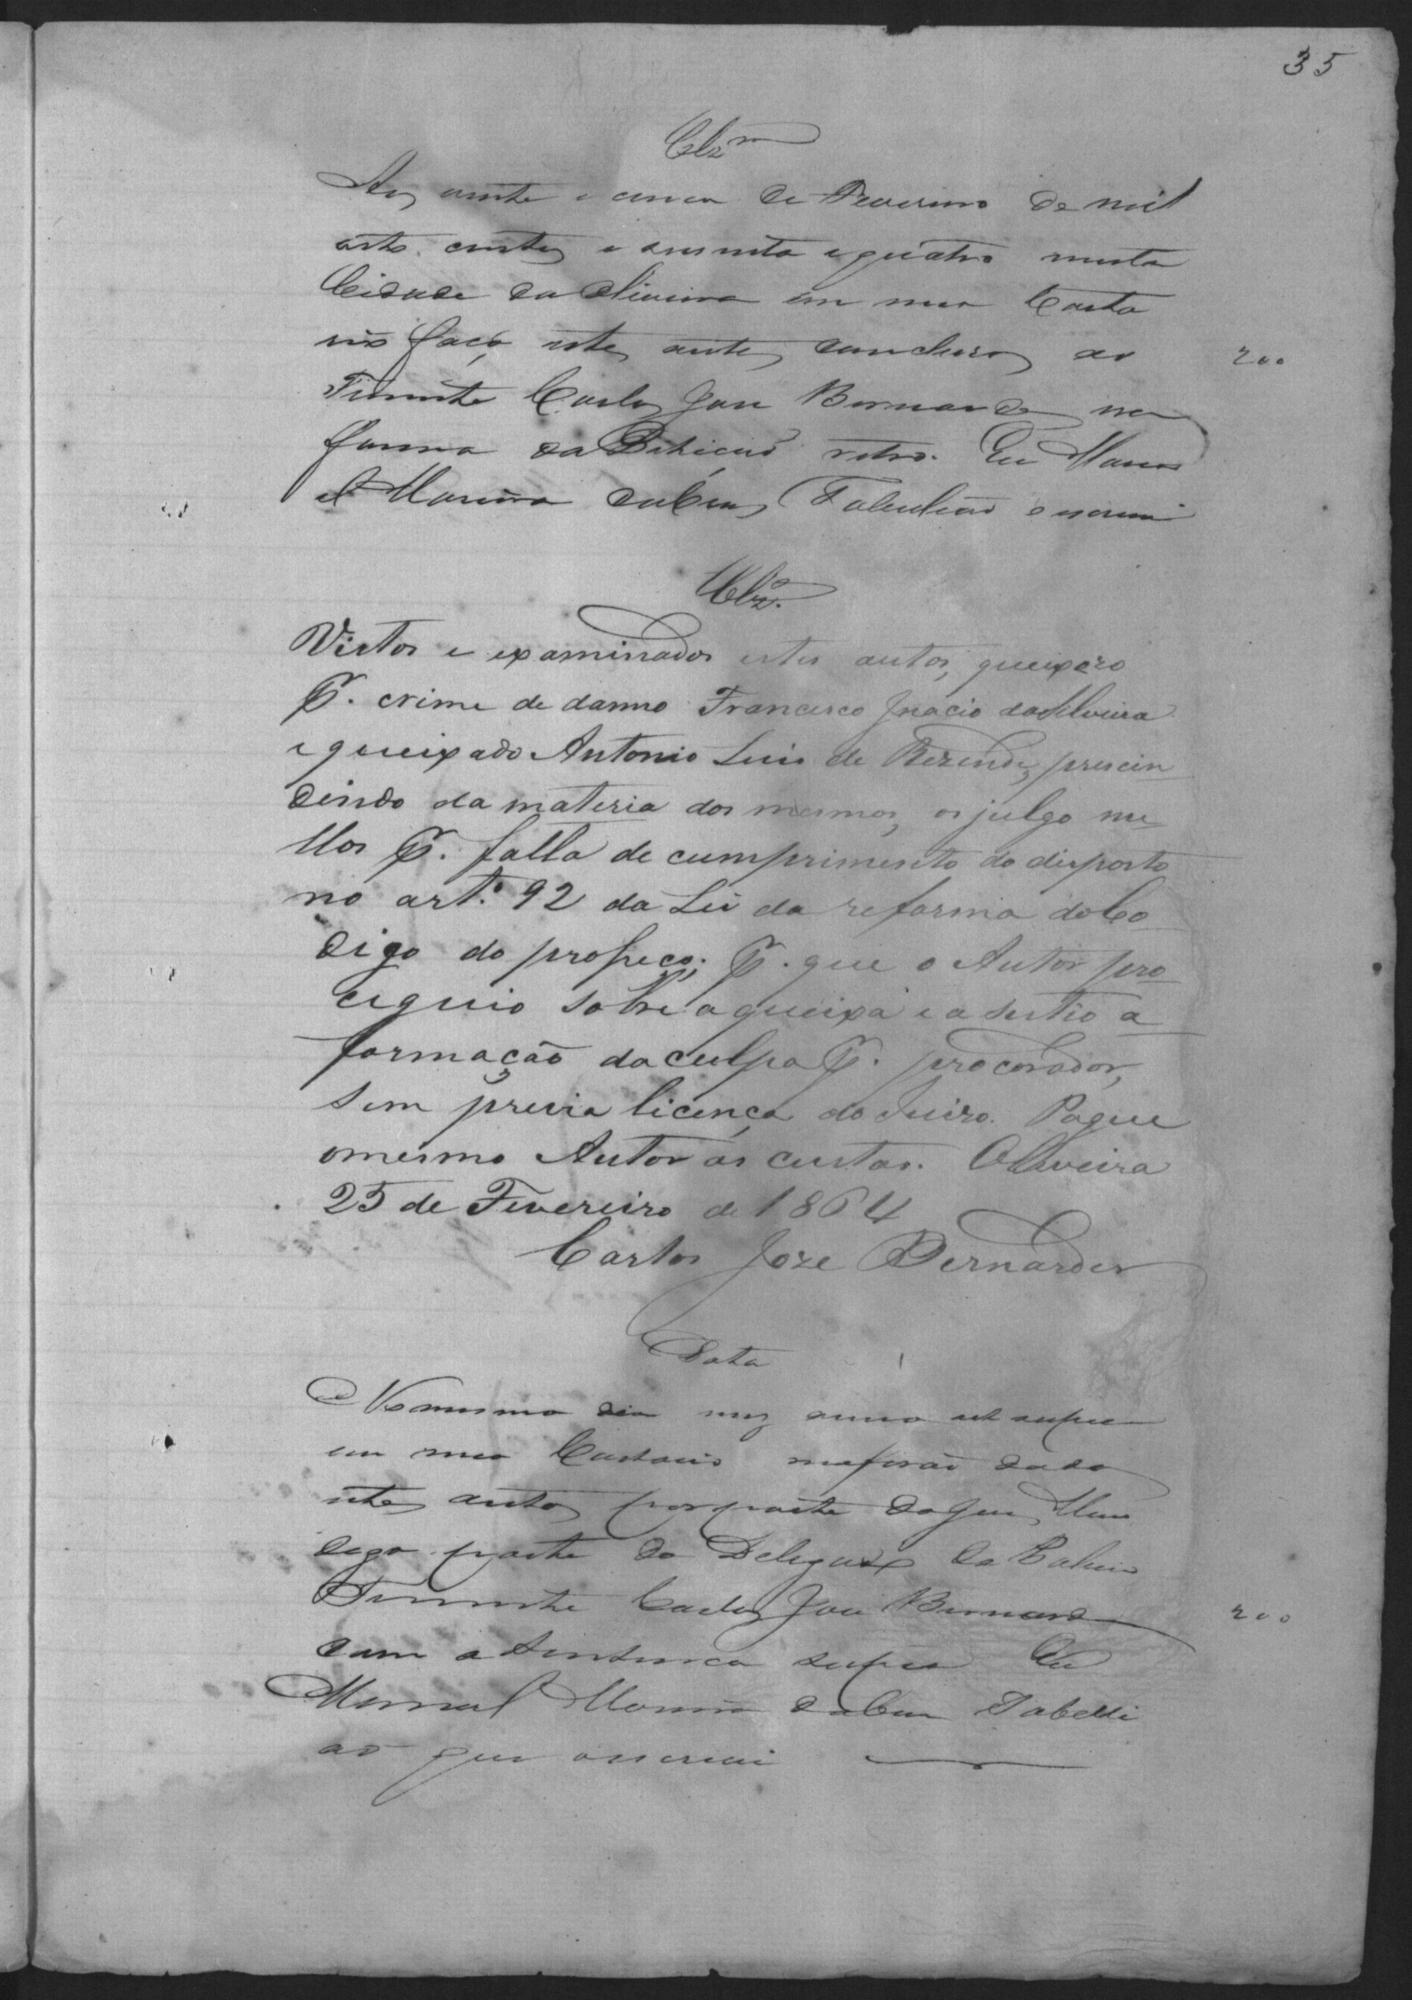 35
Clz.m
Aos vinte e cinco de Fevereiro de mil
oito centos e sessenta e quatro nesta
Cidade da Oliveira em meu Carto
rio faço estes autos conclusos ao
200
Tenente Carlos José Bernardes na
forma da Petição retro. Eu Mano
el Moreira da Tabellião o escrevi
Clz.o
Vistos e examinados estes autos, queixoso
P. crime de damno Francisco Ignacio da Silveira
e queixado Antonio Luis de Rezende, prescin
dindo da materia dos mesmos, os julgo nu-
llos P. falta de cumprimento do disposto
no art.o 92 da Lei da reforma do Co
digo do prosseço; P. que o Autor pro
ceguio sobre a queixa e asestio a
formação da culpa P. procorador,
sem previa licença do Juizo. Pague
o mesmo Autor as custas. Oliveira
25 de Fevereiro de 1864
Carlos Joze Bernardes
Data
No mesmo dia mez anno ut supra
em meu Cartorio me forão dado
estes autos por parte do Juis Mun
digo parte do Delegado da Policia
Tenente Carlos José Bernardes
200
com a Sentença supra Eu
Manoel Moreira da Tabelli
ão que o escrevi